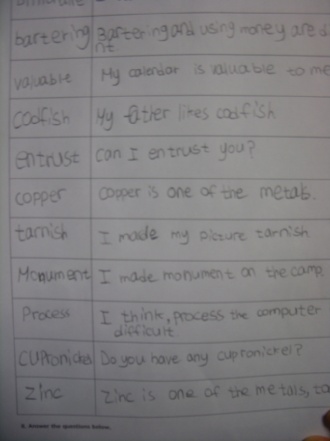 bartering Bartering and using money are d
nt
valuable My calendar is valuable to me
codfish My father likes codfish
entrust Can I entrust you?
copper Copper is one of the metals.
tarnish I made my picture tarnish
Monument I made monument on the camp
Process I think, process the computer
difficult
cupronickel Do you have any cupronickel?
zinc Zinc is one of the metals, to
B. Answer the questions below.